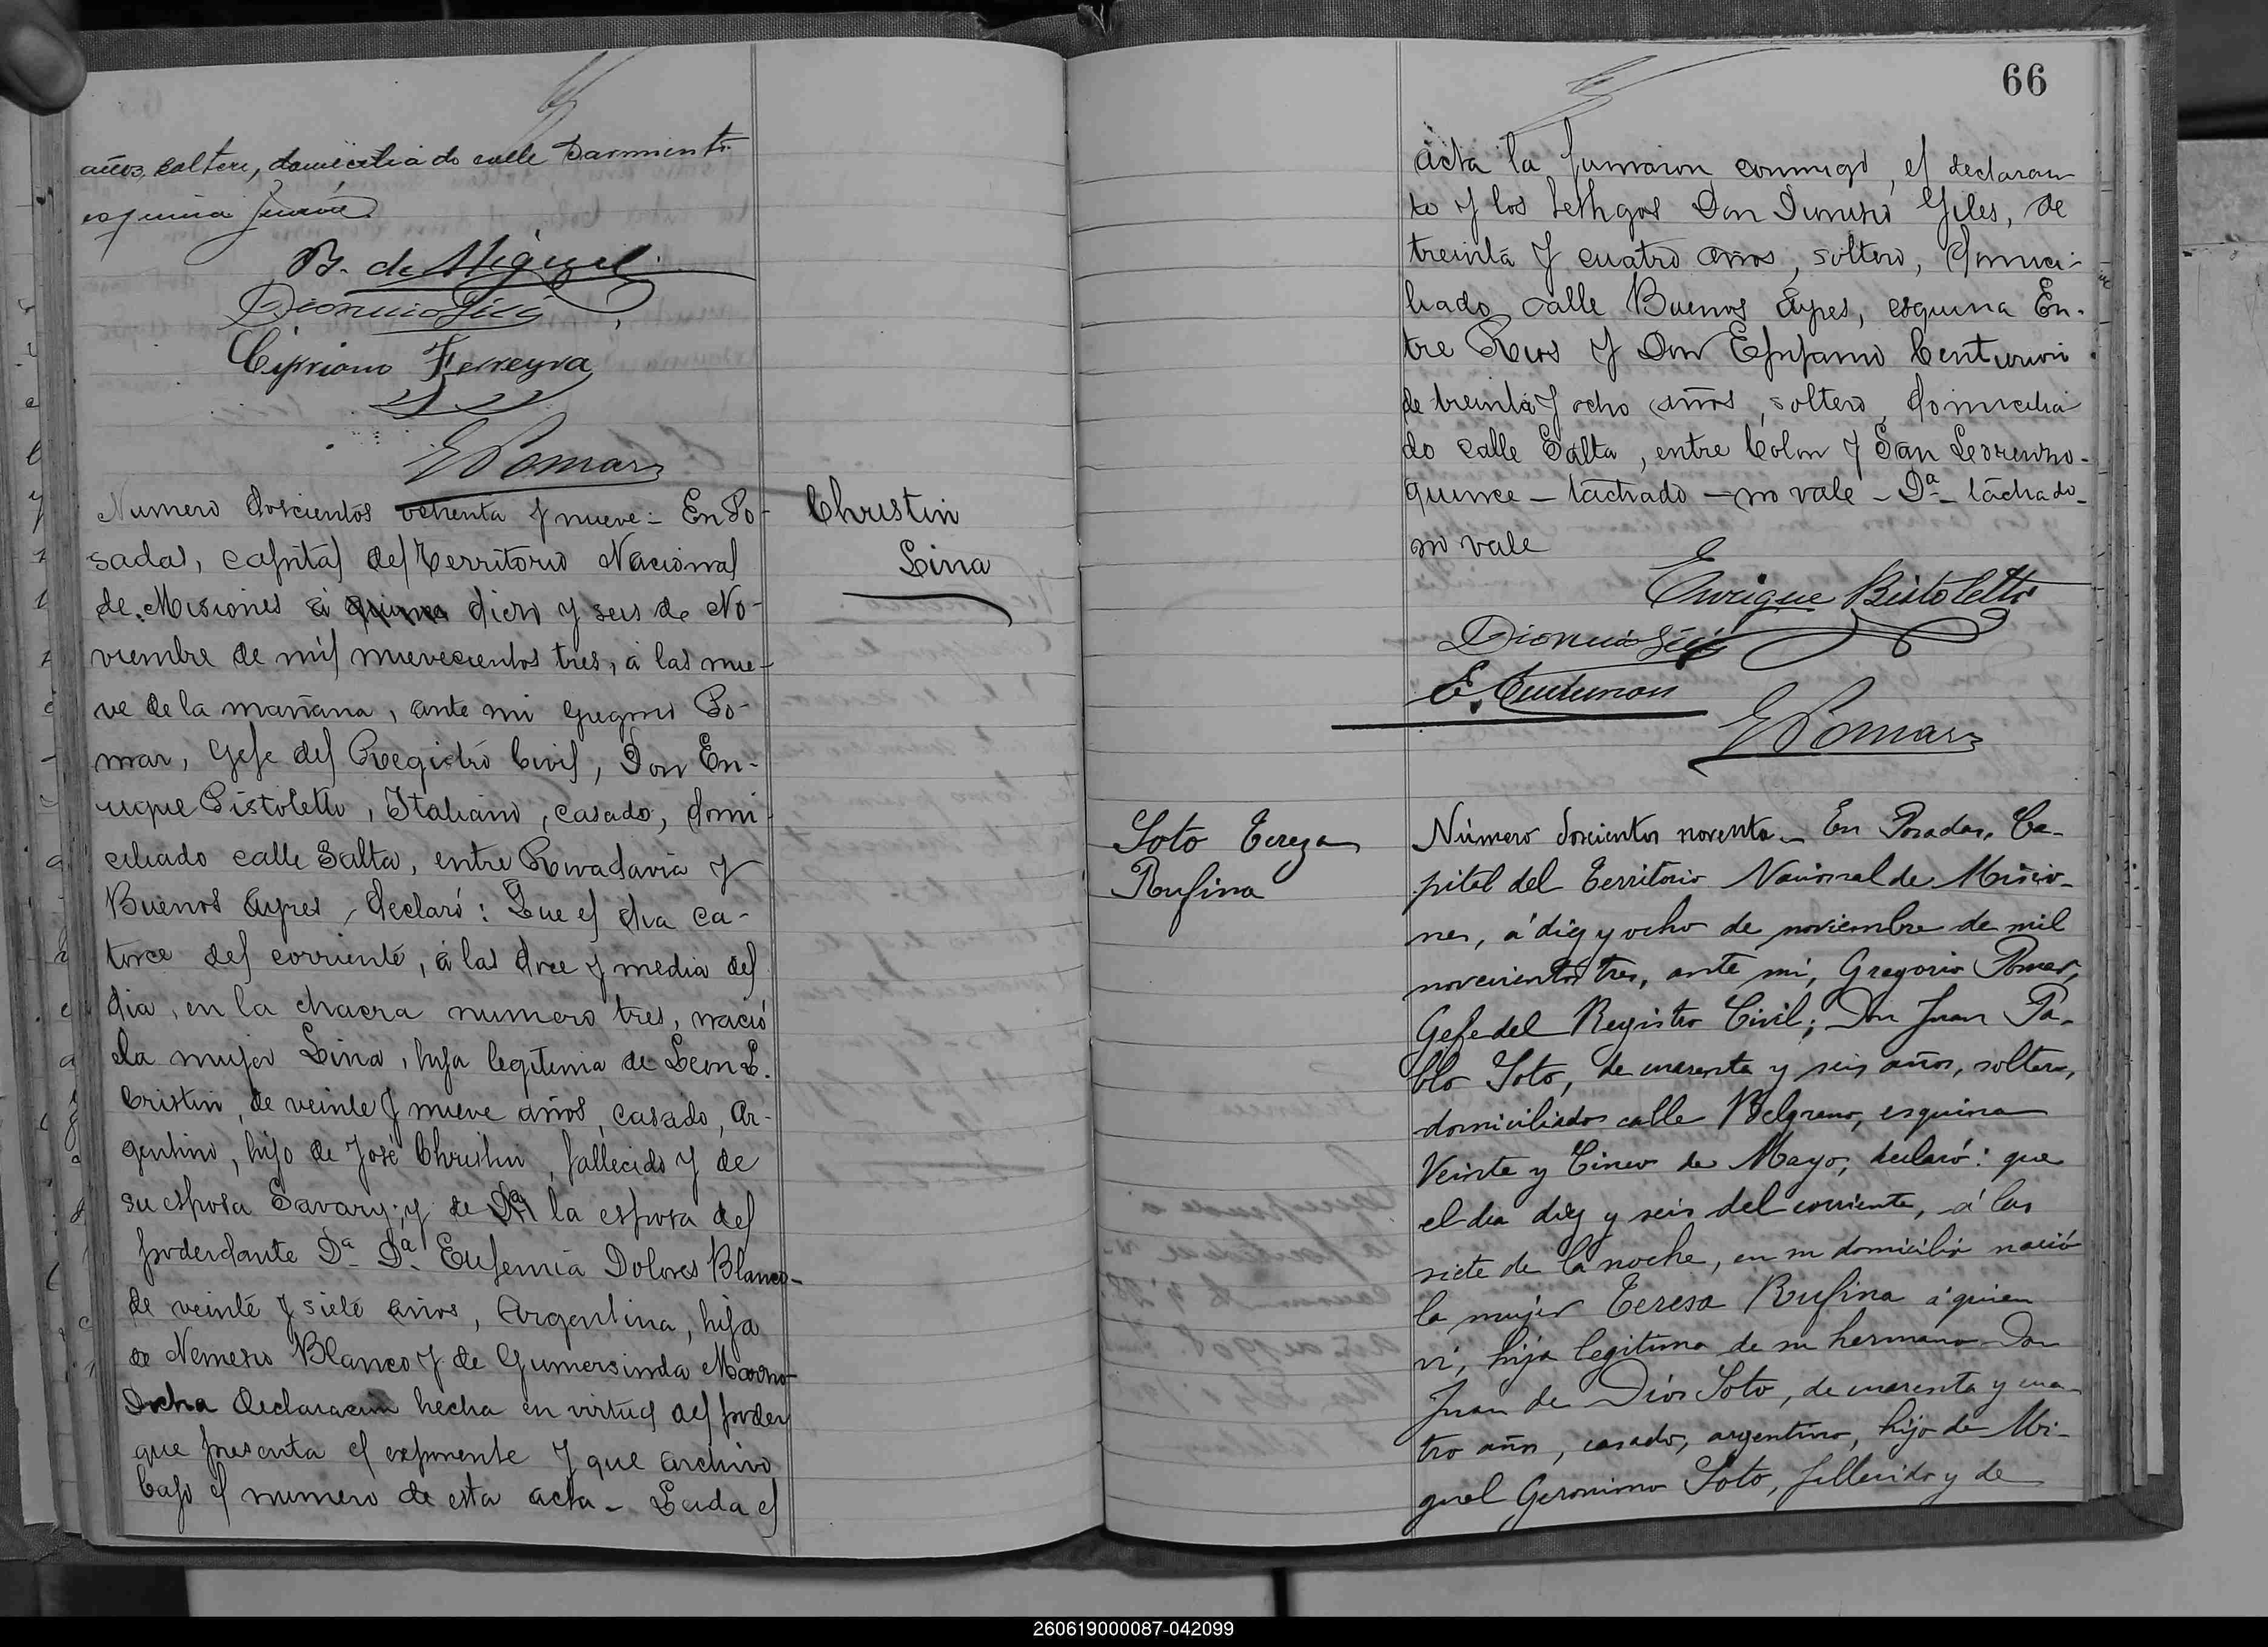 años, soltero, domiciliado calle Sarmiento
esquina Junín.
B. de Miguel
Dionicio Giles
Cipriano Ferreyra
G Pomar
Numero doscientos ochenta y nueve = En Po-
sadas, capital del Territorio Nacional
de Misiones á quince diez y seis de No-
viembre de mil novecientos tres, á las nue-
ve de la mañana, ante mi Gregorio Po-
mar, Gefe del Registro Civil, Don En-
rique Pistoletto, Italiano, casado, domi-
ciliado calle Salta, entre Rivadavia y
Buenos Ayres, declaró: Que el dia ca-
torce del corriente, á las doce y media del
dia, en la chacra numero tres, nació
la mujer Lina, hija legitima de Leon L.
Cristin, de veinte y nueve años, casado, Ar-
gentino, hijo de José Christin, fallecido y de
su esposa Savary; y de Da la esposa del
poderdante Da Da Eufemia Dolores Blanco-
de veinte y siete años, Argentina, hija
de Nemesio Blanco y de Gumersinda
Dicha declaracion hecha en virtud del poder
que presenta el exponente y que archivo
bajo el numero de esta acta - Leida el
Christin
Lina
66
acta la firmaron conmigo, el declaran-
te y los testigos Don Dionisio Giles, de
treinta y cuatro años, soltero, domici-
liado calle Buenos Ayres, esquina En-
tre Rios y Don Epifanio Centurion
de treinta y ocho años, soltero, domicilia
do calle Salta, entre Colon y San Lorenzo-
quince - tachado - no vale - Da - tachado-
no vale
Enrique Pistoletto
Dionicio Giles
E. Centurion
G Pomar
Soto Tereza
Rufina
Número doscientos noventa - En Posadas, Ca-
pital del Territorio Nacional de Misio-
nes, á diez y ocho de noviembre de mil
novecientos tres, ante mi, Gregorio Pomar,
Gefe del Registro Civil; Don Juan Pa-
blo Soto, de cuarenta y seis años, soltero,
domiciliado calle Belgrano, esquina
Veinte y Cinco de Mayo, declaró: que
el dia diez y seis del corriente, á las
siete de la noche, en su domicilio nació
la mujer Teresa Rufina á quien
vi, hija legitima de su hermano Don
Juan de Dios Soto, de cuarenta y cua-
tro años, casado, argentino, hijo de Mi-
guel Geronimo Soto, fallecido y de
260619000087-042099